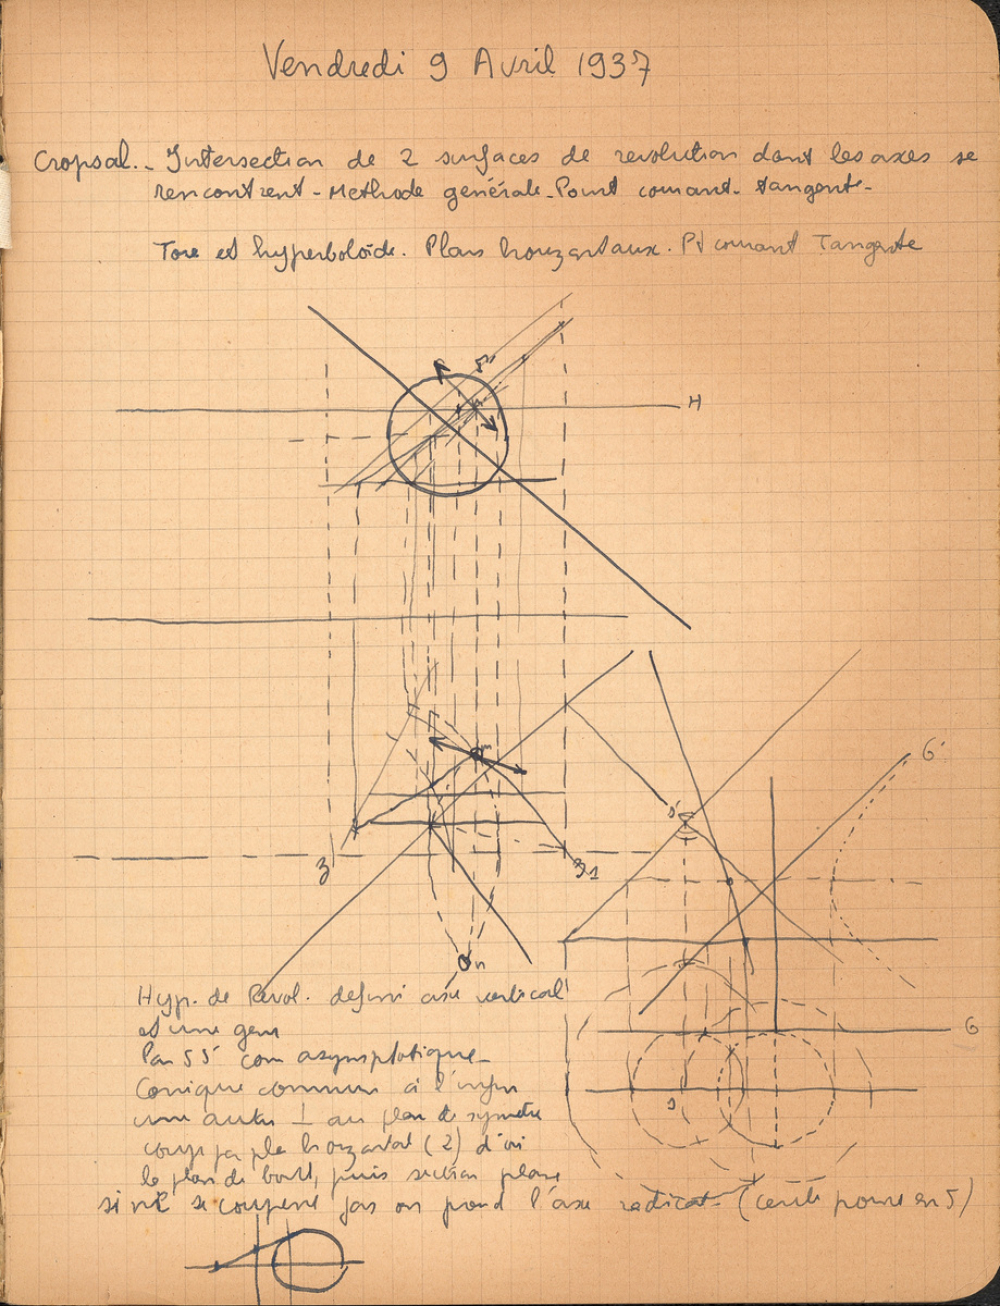 Vendredi 9 Avril 1937
Cropsal. - Intersection de 2 surfaces de revolution dont les axes se
rencontrent - Methode générale - Point courant - tangente -
Tore et hyperboloïde. Plans horizontaux. Pt courant Tangente
H
m
3
31
n
S'
G'
Hyp. de Revol. defini axe vertical
et une gen
Par SS' cone asymptotique -
G
Conique commune à l'infini
une autre ⊥ au plan de symetrie
coupe par plan horizontal (2) d'où
le plan de bout, puis section plane
si ne se coupent pas on prend l'axe radical (cercle
en S)